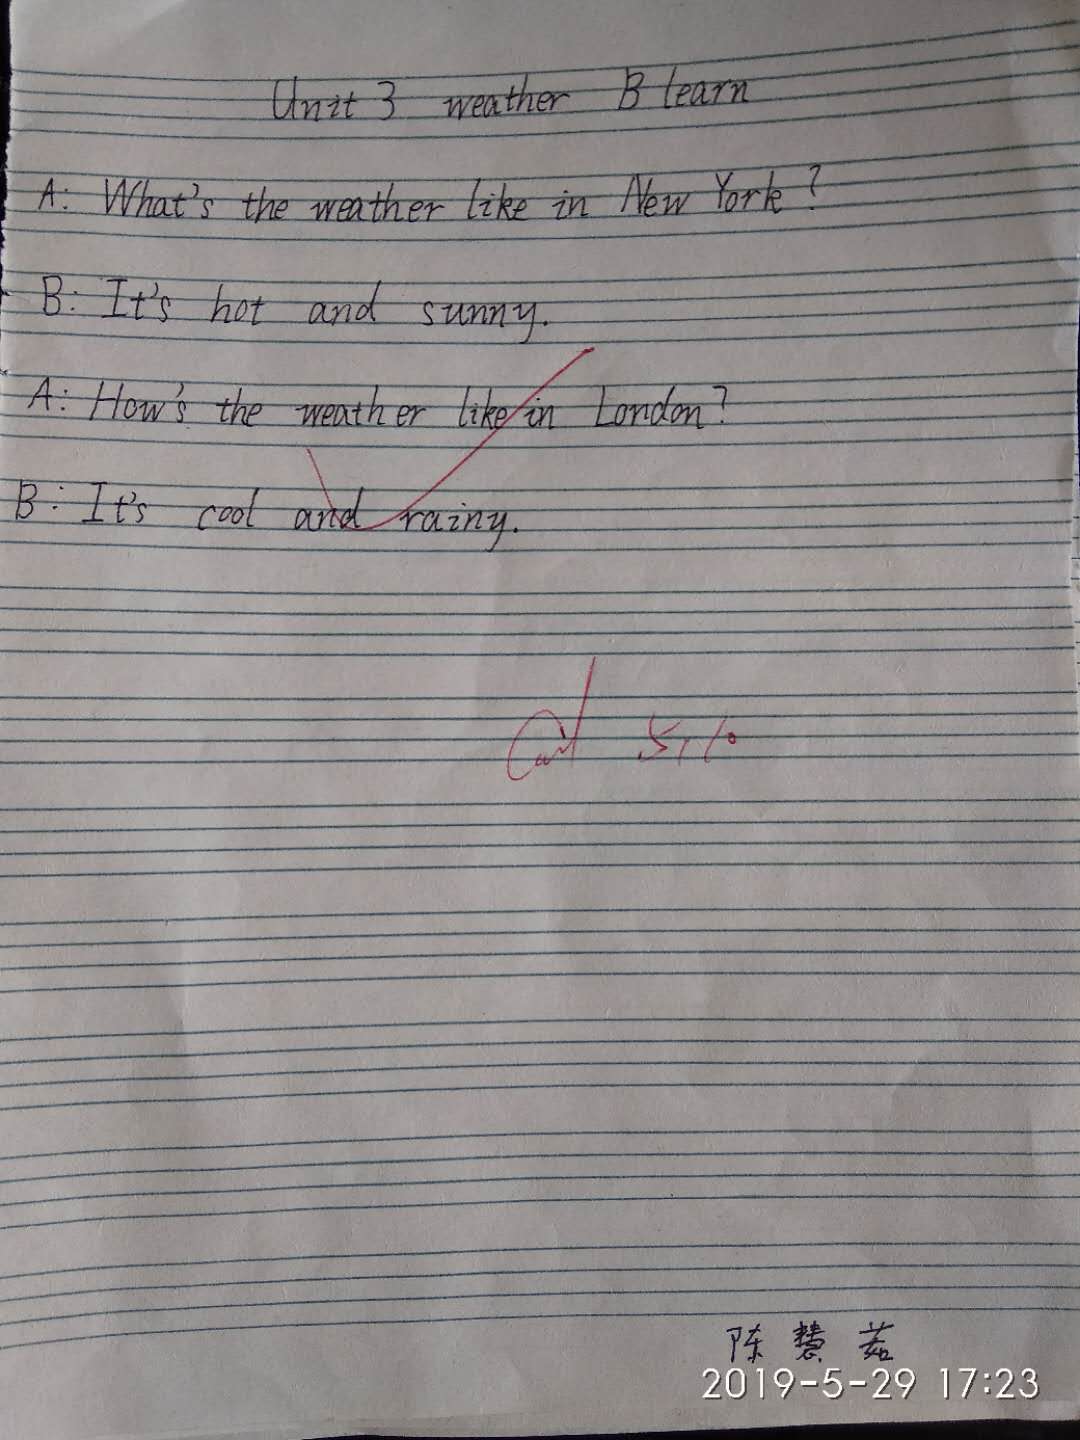 Unit 3 weather B learn
A: What's the weather like in New York?
B: It's hot and sunny.
A: How's the weather like in London?
B: It's cool and rainy.
5,10
陈慧茹
2019-5-29 17:23